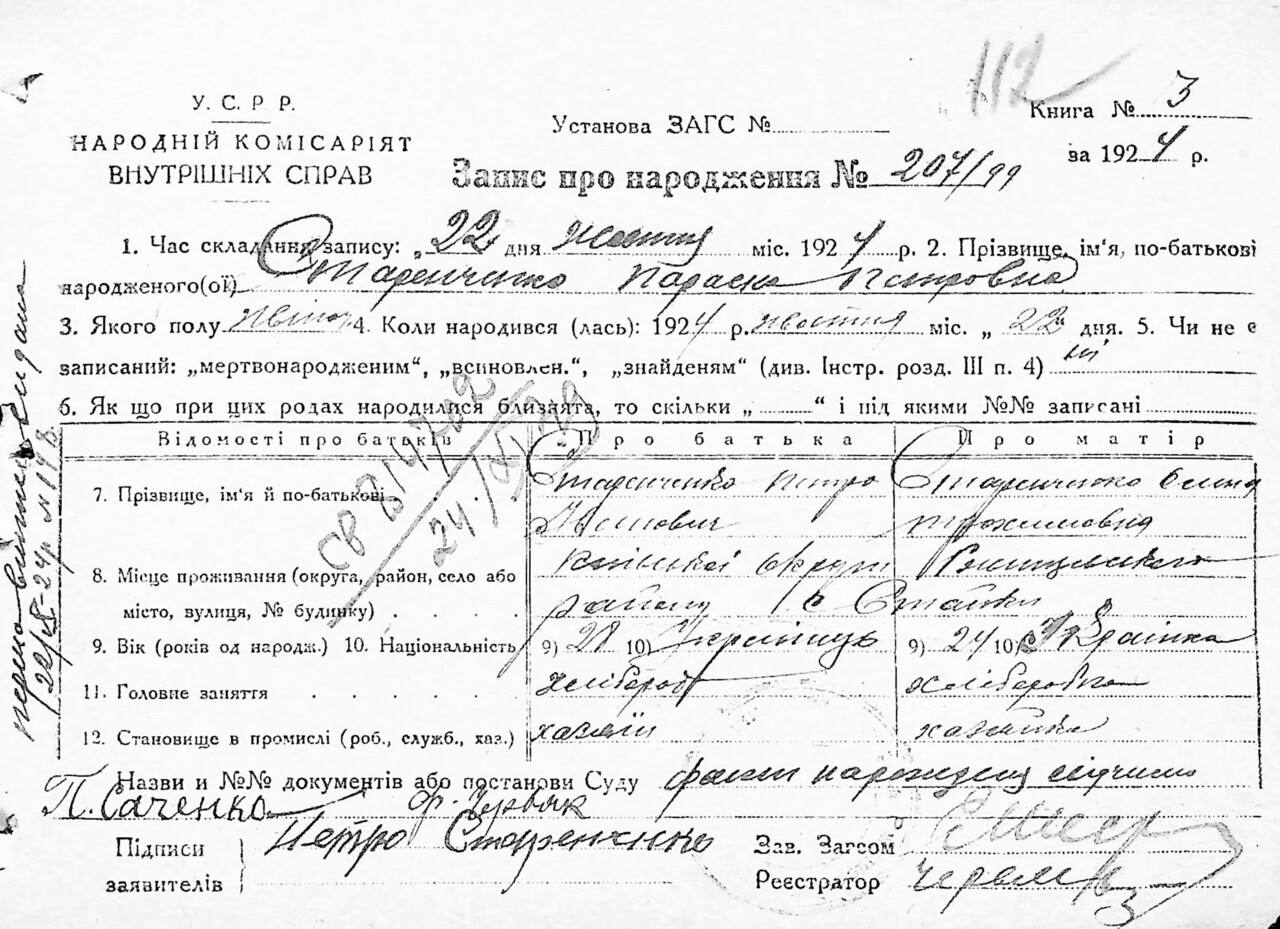 112
У. С. Р. Р.
НАРОДНІЙ КОМІСАРІЯТ
ВНУТРІШНІХ СПРАВ
Установа ЗАГС №
Книга № 3
за 1924 р.
Запис про народження № 207/99
1. Час складання запису: „22 дня жовтня міс. 1924 р. 2. Прізвище, ім'я, по-батькові
народженого(ої) Старенченко Параска Петровна
3. Якого полу жіноч. 4. Коли народився (лась): 1924 р. жовтня міс. „ 22" дня. 5. Чи не є
записаний: „мертвонародженим", „всиновлен.", „знайденям" (див. Інстр. розд. III п. 4) ні
6. Як що при цих родах народилися близнята, то скільки „ " і під якими №№ записані
Відомості про батьків Про батька Про матір
7. Прізвище, ім'я й по-батькові Старенченко Петро Старенченко
Трохимовна
8. Місце проживання (округа, район, село або Київської округи
місто, вулиця, № будинку) району с Стайки
9. Вік (років од народж.) 10. Національність 9) 28 10) Українець 9) 24 10) Українка
11. Головне заняття хлібороб хліборобка
12. Становище в промислі (роб., служб., хаз.) хазяїн хазяйка
Назви и №№ документів або постанови Суду факт народження
П. Саченко
Підписи
заявителів
Петро Старенченко
Зав. Загсом
Реєстратор
св В 19702
24/XI 39
22/X-24р N 148.